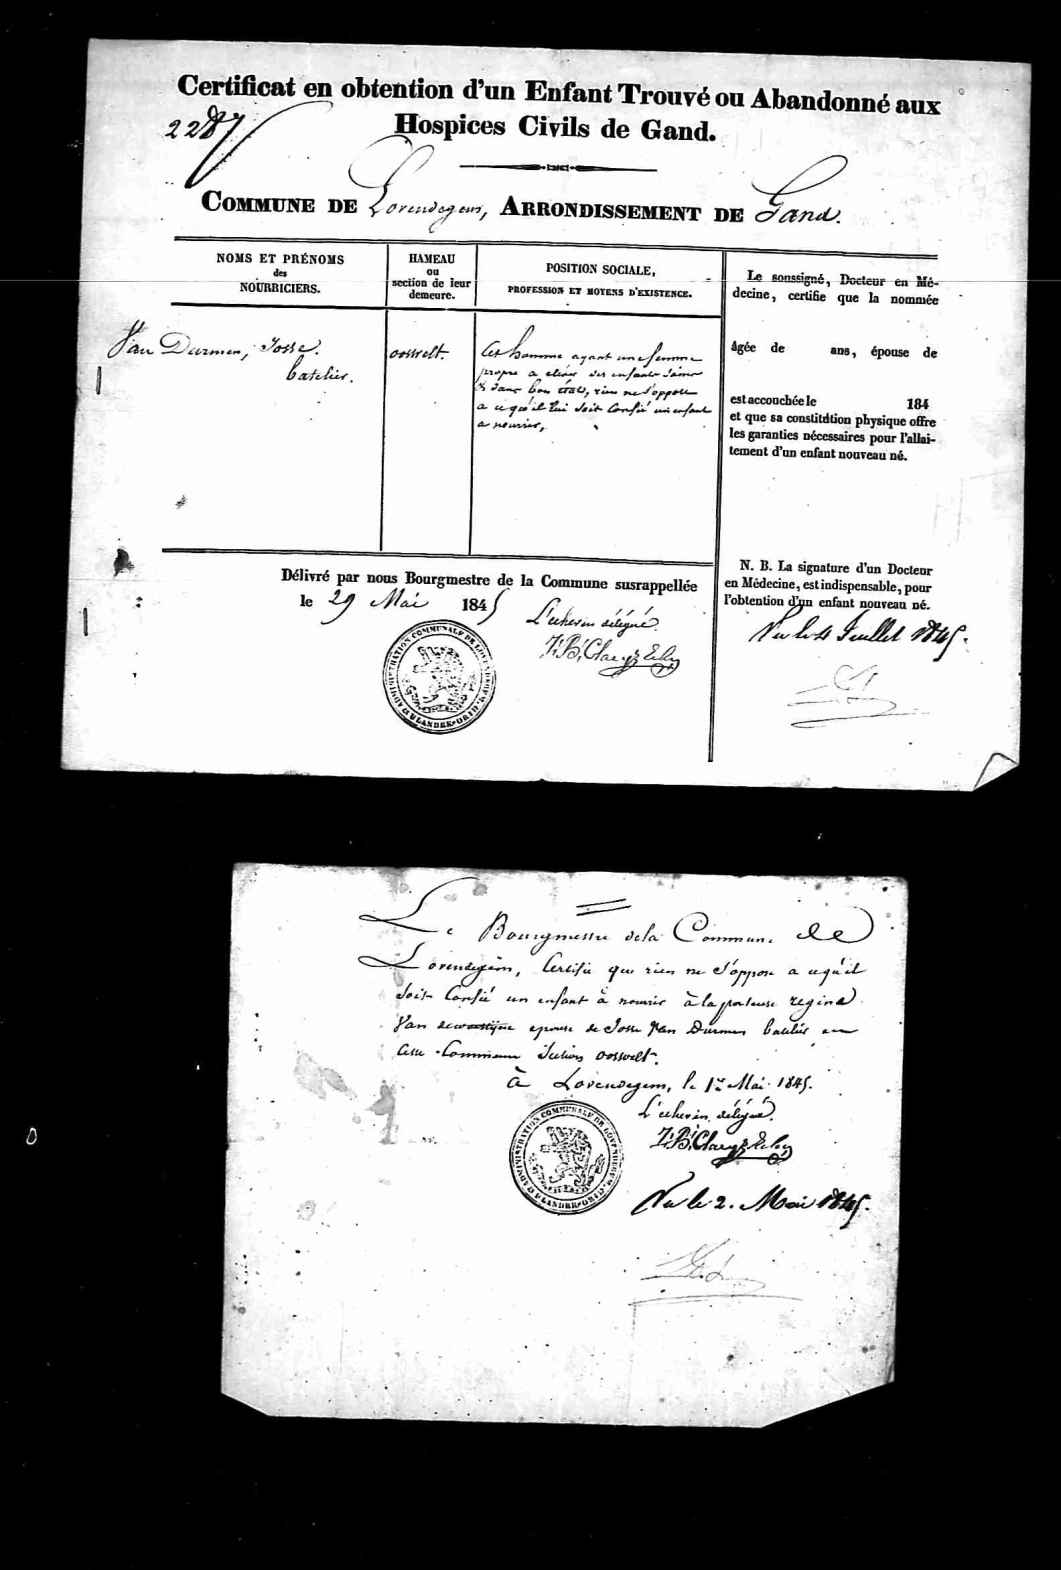 Certificat en obtention d'un Enfant Trouvé ou Abandonné aux
Hospices Civils de Gand.
2287
COMMUNE DE Lovendegem, ARRONDISSEMENT DE Gand.
NOMS ET PRÉNOMS
des
NOURRICIERS.
HAMEAU
ou
section de leur
demeure.
POSITION SOCIALE,
PROFESSION ET MOYENS D'EXISTENCE.
Van Durmen, Josse.
batelier.
oosvelt.
Cet homme ayant une femme
propre a élever des enfants
dans bon état, rien ne s'oppose
a ce qu'il lui soit confié un enfant
a nourrir,
Le soussigné, Docteur en Mé-
decine, certifie que la nommée
âgée de ans, épouse de
est accouchée le 184
et que sa constitution physique offre
les garanties nécessaires pour l'allai-
tement d'un enfant nouveau né.
N. B. La signature d'un Docteur
en Médecine, est indispensable, pour
l'obtention d'un enfant nouveau né.
Vu le 4 Juillet 1845.
Délivré par nous Bourgmestre de la Commune susrappellée
le 29 Mai 1845
L'echevin délégué.
ADMINISTRATION COMMUNALE DE LOVENDEGEM
FLANDRE-ORIE
Le Bourgmestre de la Commune de
Lovendegem, Certifie que rien ne s'oppose a ce qu'il
soit Confié un enfant à nourrir à la porteuse regina
Van epouse de Josse Van Durmen batelier en
cette Commune Section oosvelt.
à Lovendegem, le 1er Mai 1845.
L'echevin délégué.
ADMINISTRATION COMMUNALE DE LOVENDEGEM
FLANDRE-ORIE
Vu le 2. Mai 1845.